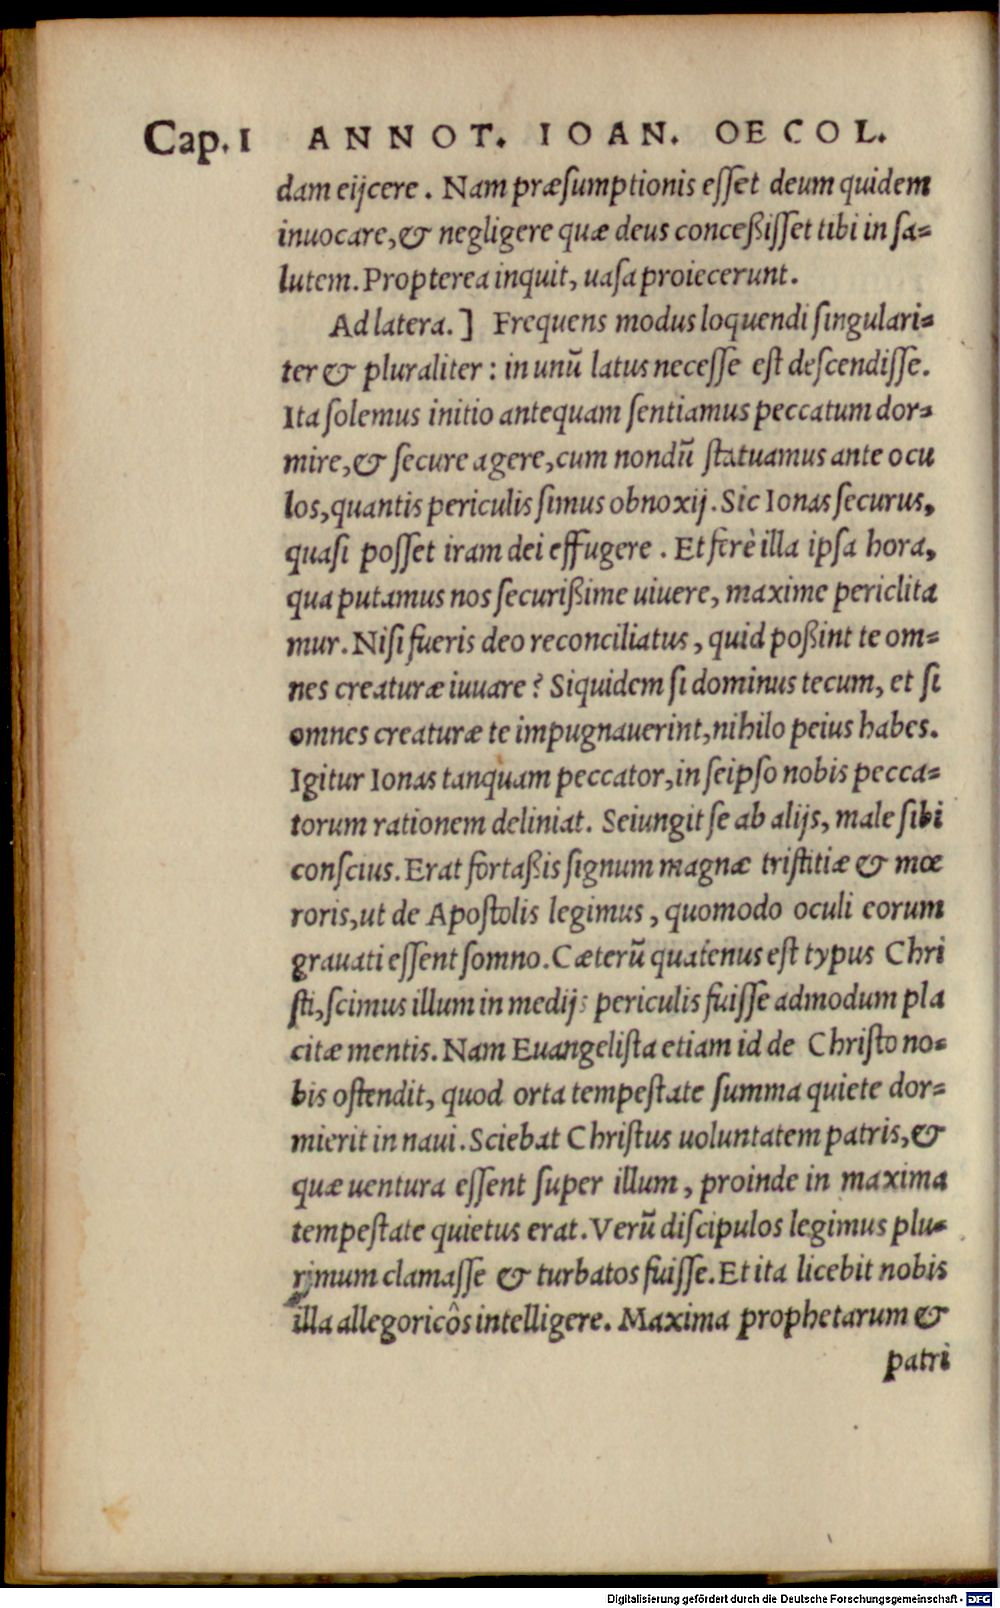 Cap. I ANNOT. IOAN. OECOL.
dam eijcere. Nam præsumptionis esset deum quidem
inuocare, & negligere quæ deus conceßisset tibi in sa=
lutem. Propterea inquit, uasa proiecerunt.
Ad latera.] Frequens modus loquendi singulari=
ter & pluraliter: in unū latus necesse est descendisse.
Ita solemus initio antequam sentiamus peccatum dor=
mire, & secure agere, cum nondū statuamus ante ocu
los, quantis periculis simus obnoxij. Sic Ionas securus,
quasi posset iram dei effugere. Et ferè illa ipsa hora,
qua putamus nos securißime uiuere, maxime periclita
mur. Nisi fueris deo reconciliatus, quid poßint te om=
nes creaturæ iuuare? Siquidem si dominus tecum, et si
omnes creaturæ te impugnauerint, nihilo peius habes.
Igitur Ionas tanquam peccator, in seipso nobis pecca=
torum rationem deliniat. Seiungit se ab alijs, male sibi
conscius. Erat fortaßis signum magnæ tristitiæ & mœ
roris, ut de Apostolis legimus, quomodo oculi eorum
grauati essent somno. Cæterū quatenus est typus Chri
sti, scimus illum in medijs periculis fuisse admodum pla
citæ mentis. Nam Euangelista etiam id de Christo no=
bis ostendit, quod orta tempestate summa quiete dor=
mierit in naui. Sciebat Christus uoluntatem patris, &
quæ uentura essent super illum, proinde in maxima
tempestate quietus erat. Verū discipulos legimus plu=
rimum clamasse & turbatos fuisse. Et ita licebit nobis
illa allegoricôs intelligere. Maxima prophetarum &
patri
Digitalisierung gefördert durch die Deutsche Forschungsgemeinschaft - DFG